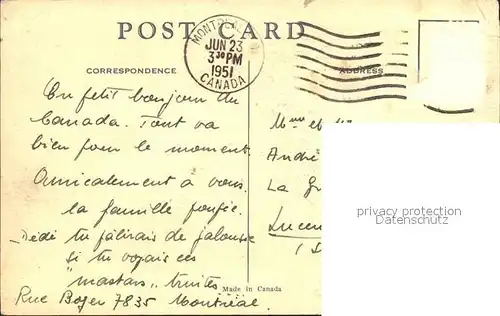 POST CARD
MONTREAL
JUN 23
3 30 PM
1951
CANADA
CORRESPONDENCE
ADDRESS
Un petit bonjour du
Canada. Tout va
bien pour le moment.
Amicalement à vous
la famille
Dédé tu pâlirais de jalousie
si tu voyais ces
"mastars" truites
Rue Boyer 7835 Montréal.
Made in Canada
Mme et
André
La
privacy protection
Datenschutz